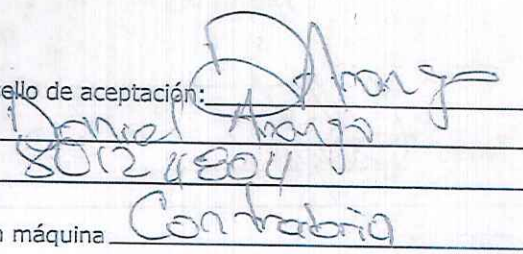 ello de aceptación: DArango
Daniel Arango
80124804
n máquina Contraloria